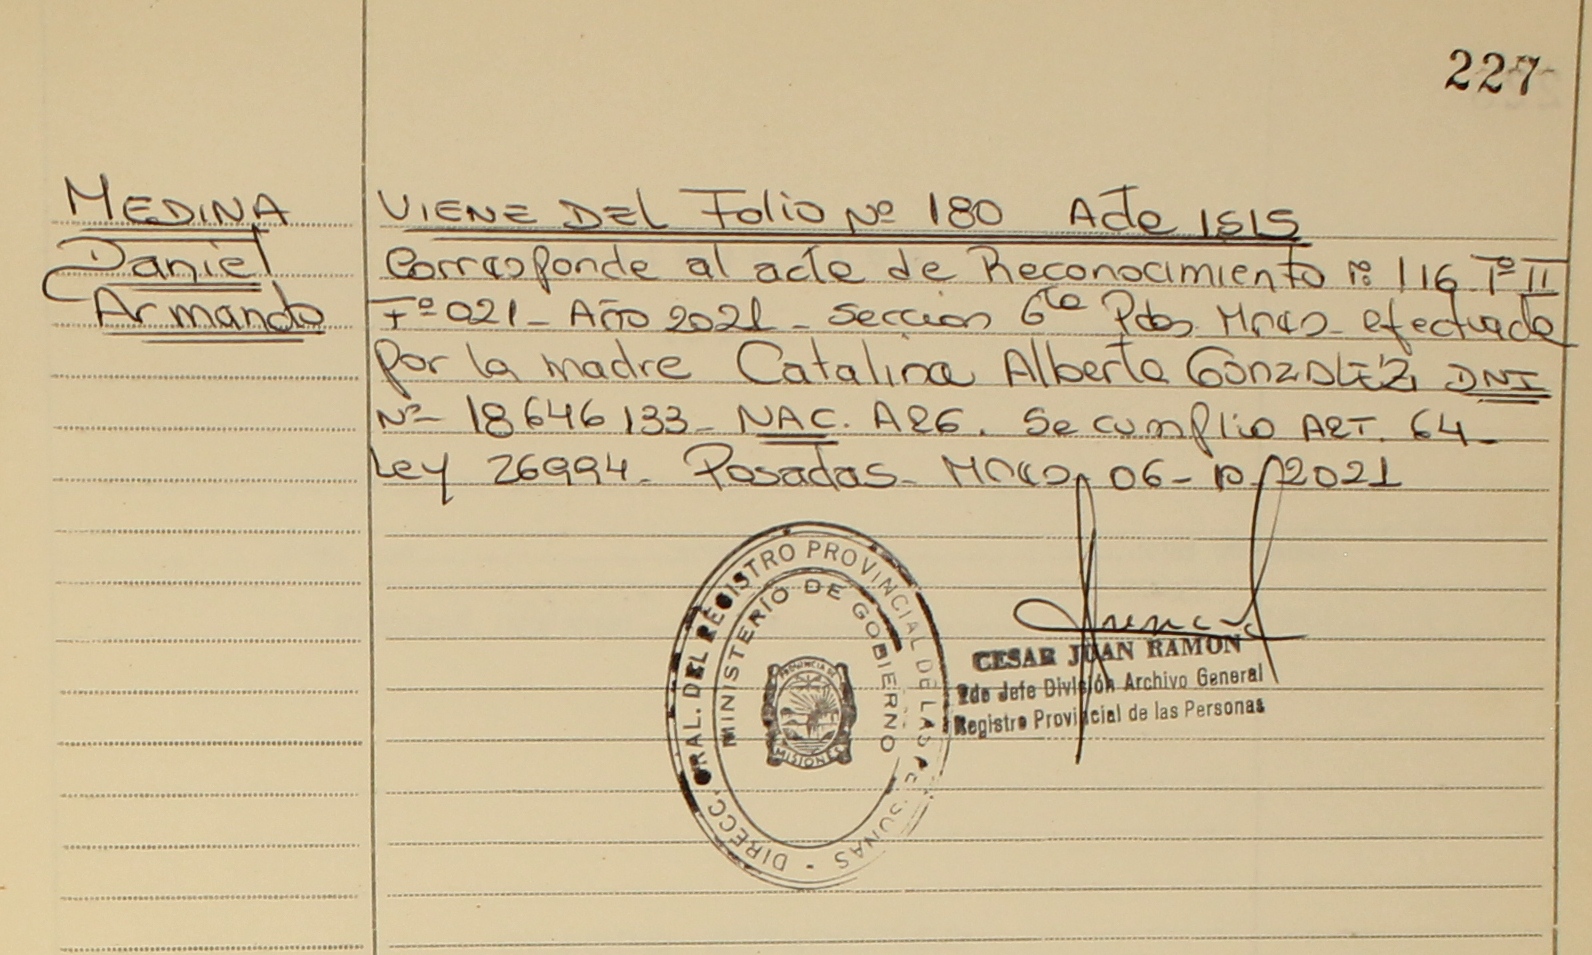 227
MEDINA
Daniel
Armando
VIENE DEL Folio Nº 180 Acta 1515
Corresponde al acta de Reconocimiento nº 116 Tº II
Fº 021 - Año 2021 - Sección 6ta Pdas Mnes efectuada
por la madre Catalina Alberta GONZALEZ, DNI
Nº 18646133 - NAC. ARG. Se cumplio ART. 64 -
Ley 26994 - Posadas - Mnes, 06 - 10 / 2021
DIRECC. GRAL. DEL REGISTRO PROVINCIAL DE LAS PERSONAS -
MINISTERIO DE GOBIERNO
PROVINCIA DE
MISIONES
CESAR JUAN RAMON
2do Jefe División Archivo General
Registro Provincial de las Personas